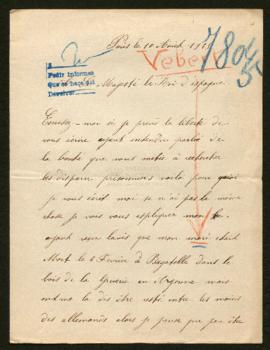 Paris le 10 Aout 1915
Veber
78045
2
Pedir informes
Que se haga así
Devolver
Majesté le Roi d'espagne
Excusez-moi si je prends la liberté de
vous écrire ayant entendu parler de
la bonté que vous mettez à rechercher
les disparus prisonniers voila pour quoi
je vous écrit moi se n'ai pas la même
chose je vais vous expliquer mon
ayant reçu l'avis que mon mari était
Mort le 8 Février à Bagatelle dans le
bois de la Grurie en Argonne mais
entendu le dis être resté entre les mains
des allemands alors je pense que peu être